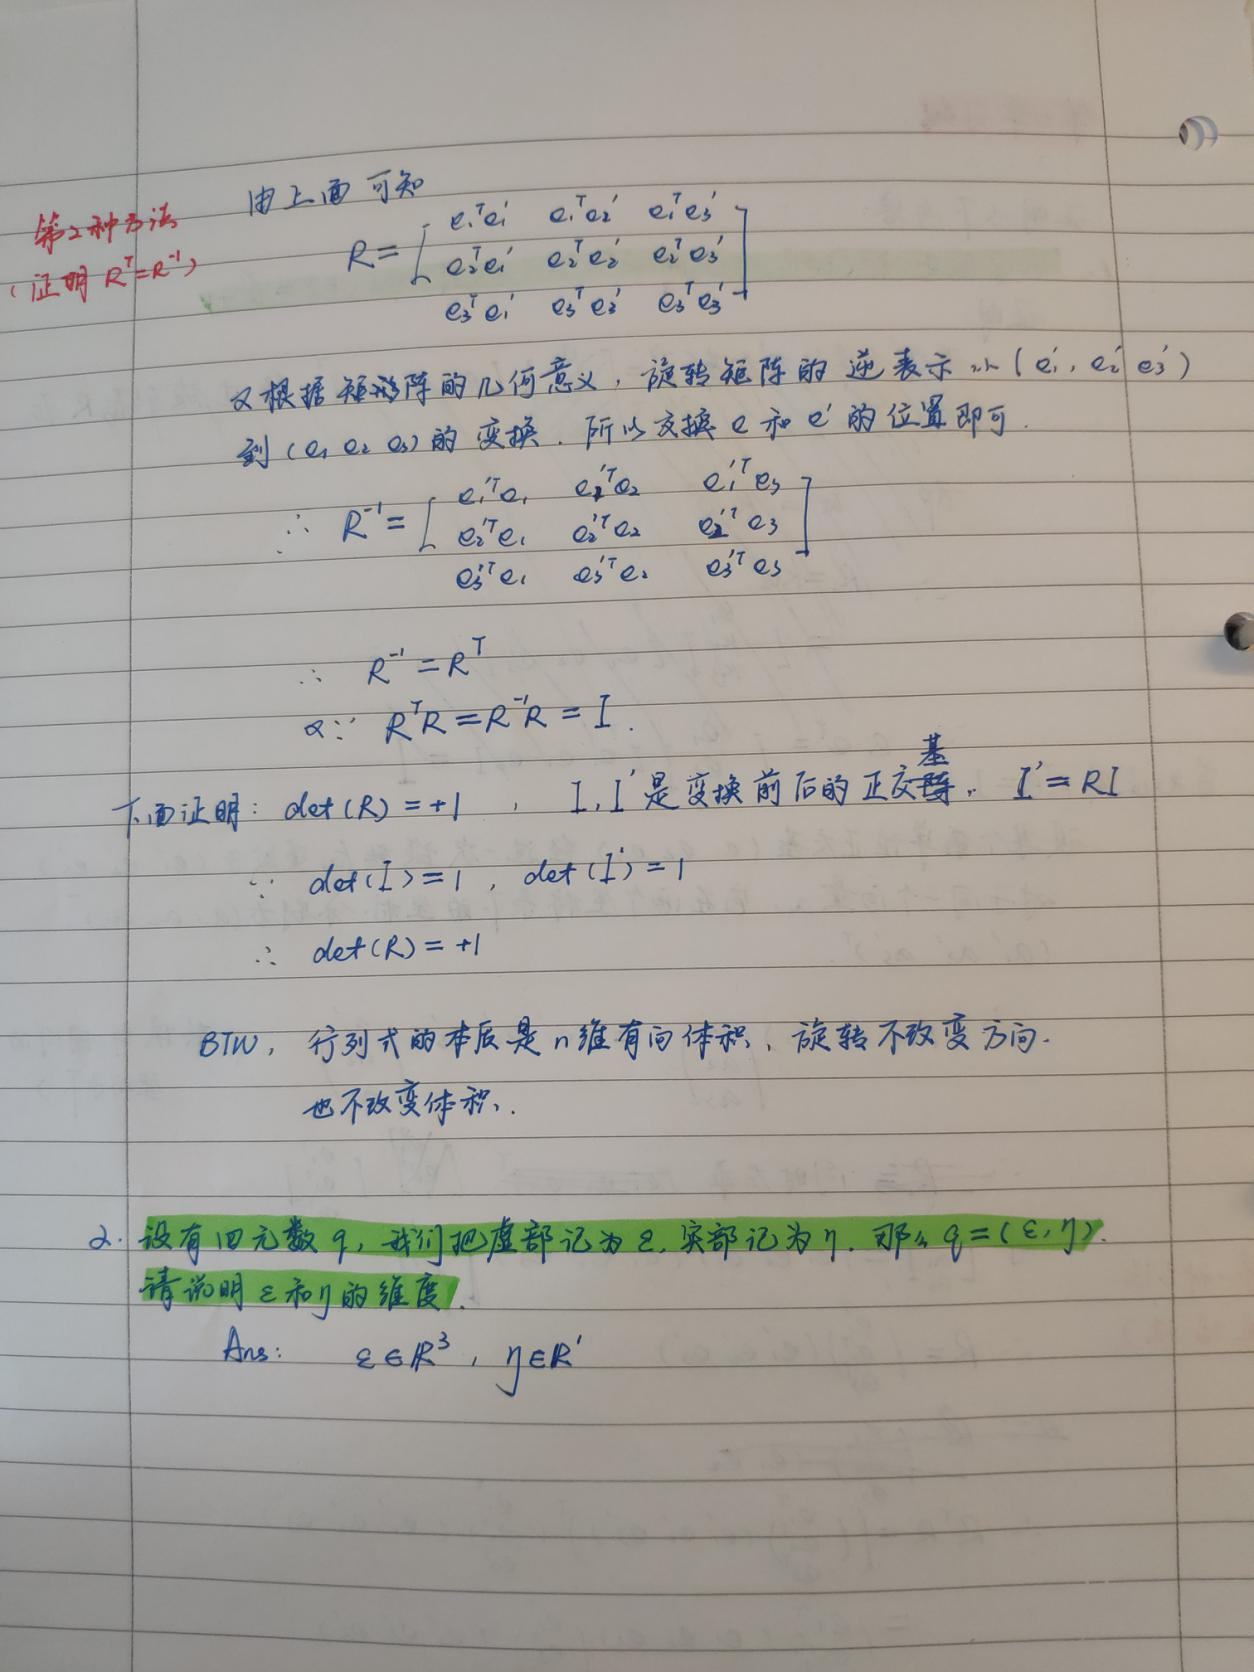 第2种方法
(证明 Rᵀ=R⁻¹)
由上面可知
R = [ e₁ᵀe₁′ e₁ᵀe₂′ e₁ᵀe₃′
e₂ᵀe₁′ e₂ᵀe₂′ e₂ᵀe₃′
e₃ᵀe₁′ e₃ᵀe₂′ e₃ᵀe₃′ ]
又根据矩阵的几何意义，旋转矩阵的逆表示从(e₁′, e₂′ e₃′)
到(e₁ e₂ e₃)的变换. 所以交换 e 和 e′ 的位置即可.
∴ R⁻¹ = [ e₁′ᵀe₁ e₂′ᵀe₂ e₁′ᵀe₃
e₂′ᵀe₁ e₂′ᵀe₂ e₂′ᵀe₃
e₃′ᵀe₁ e₃′ᵀe₂ e₃′ᵀe₃ ]
∴ R⁻¹ = Rᵀ
∵ RᵀR = R⁻¹R = I.
下面证明: det(R) = +1 , I, I′ 是变换前后的正交基. I′ = RI
∵ det(I) = 1, det(I′) = 1
∴ det(R) = +1
BTW, 行列式的本质是n维有向体积, 旋转不改变方向.
也不改变体积.
2. 设有四元数 q, 我们把虚部记为 ε, 实部记为 η. 那么 q = (ε, η).
请说明 ε 和 η 的维度.
Ans: ε∈ℝ³, η∈ℝ¹